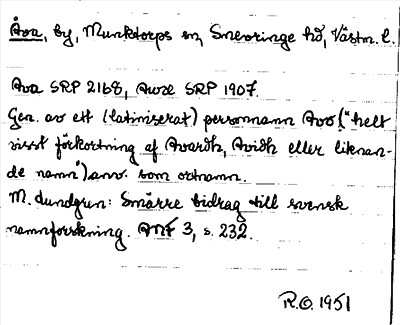 Åva, by, Munktorps sn, Snevringe hd, Västm. l.
Ava SRP 2168, Awæ SRP 1907.
Gen. av ett (latiniserat) personnamn Avo ("helt
visst förkortning af Avardh, Avidh eller liknan-
de namn") anv. som ortnamn.
M. Lundgren: Smärre bidrag till svensk
namnforskning. ANF 3, s. 232.
R.O. 1951